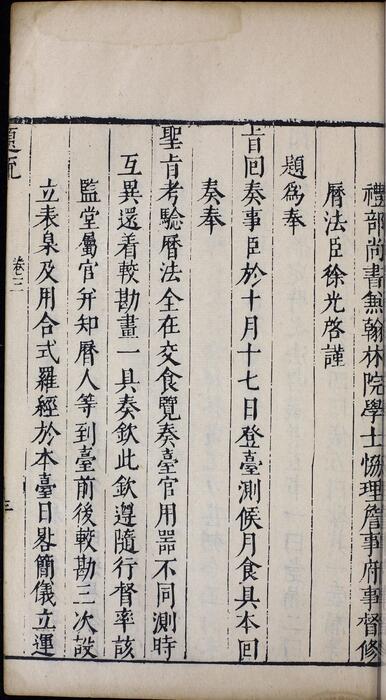 禮部尚書兼翰林院學士恊理詹事府事督修
曆法臣徐光啓謹
題爲奉
旨回奏事臣於十月十七日登臺測候月食具本回
奏奉
聖旨考驗曆法全在交食覽奏臺官用器不同測時
互異還着較勘畫一具奏欽此欽遵隨行督率該
監堂屬官并知曆人等到臺前後較勘三次設
立表臬及用合式羅經於本臺日晷簡儀立運
卷三